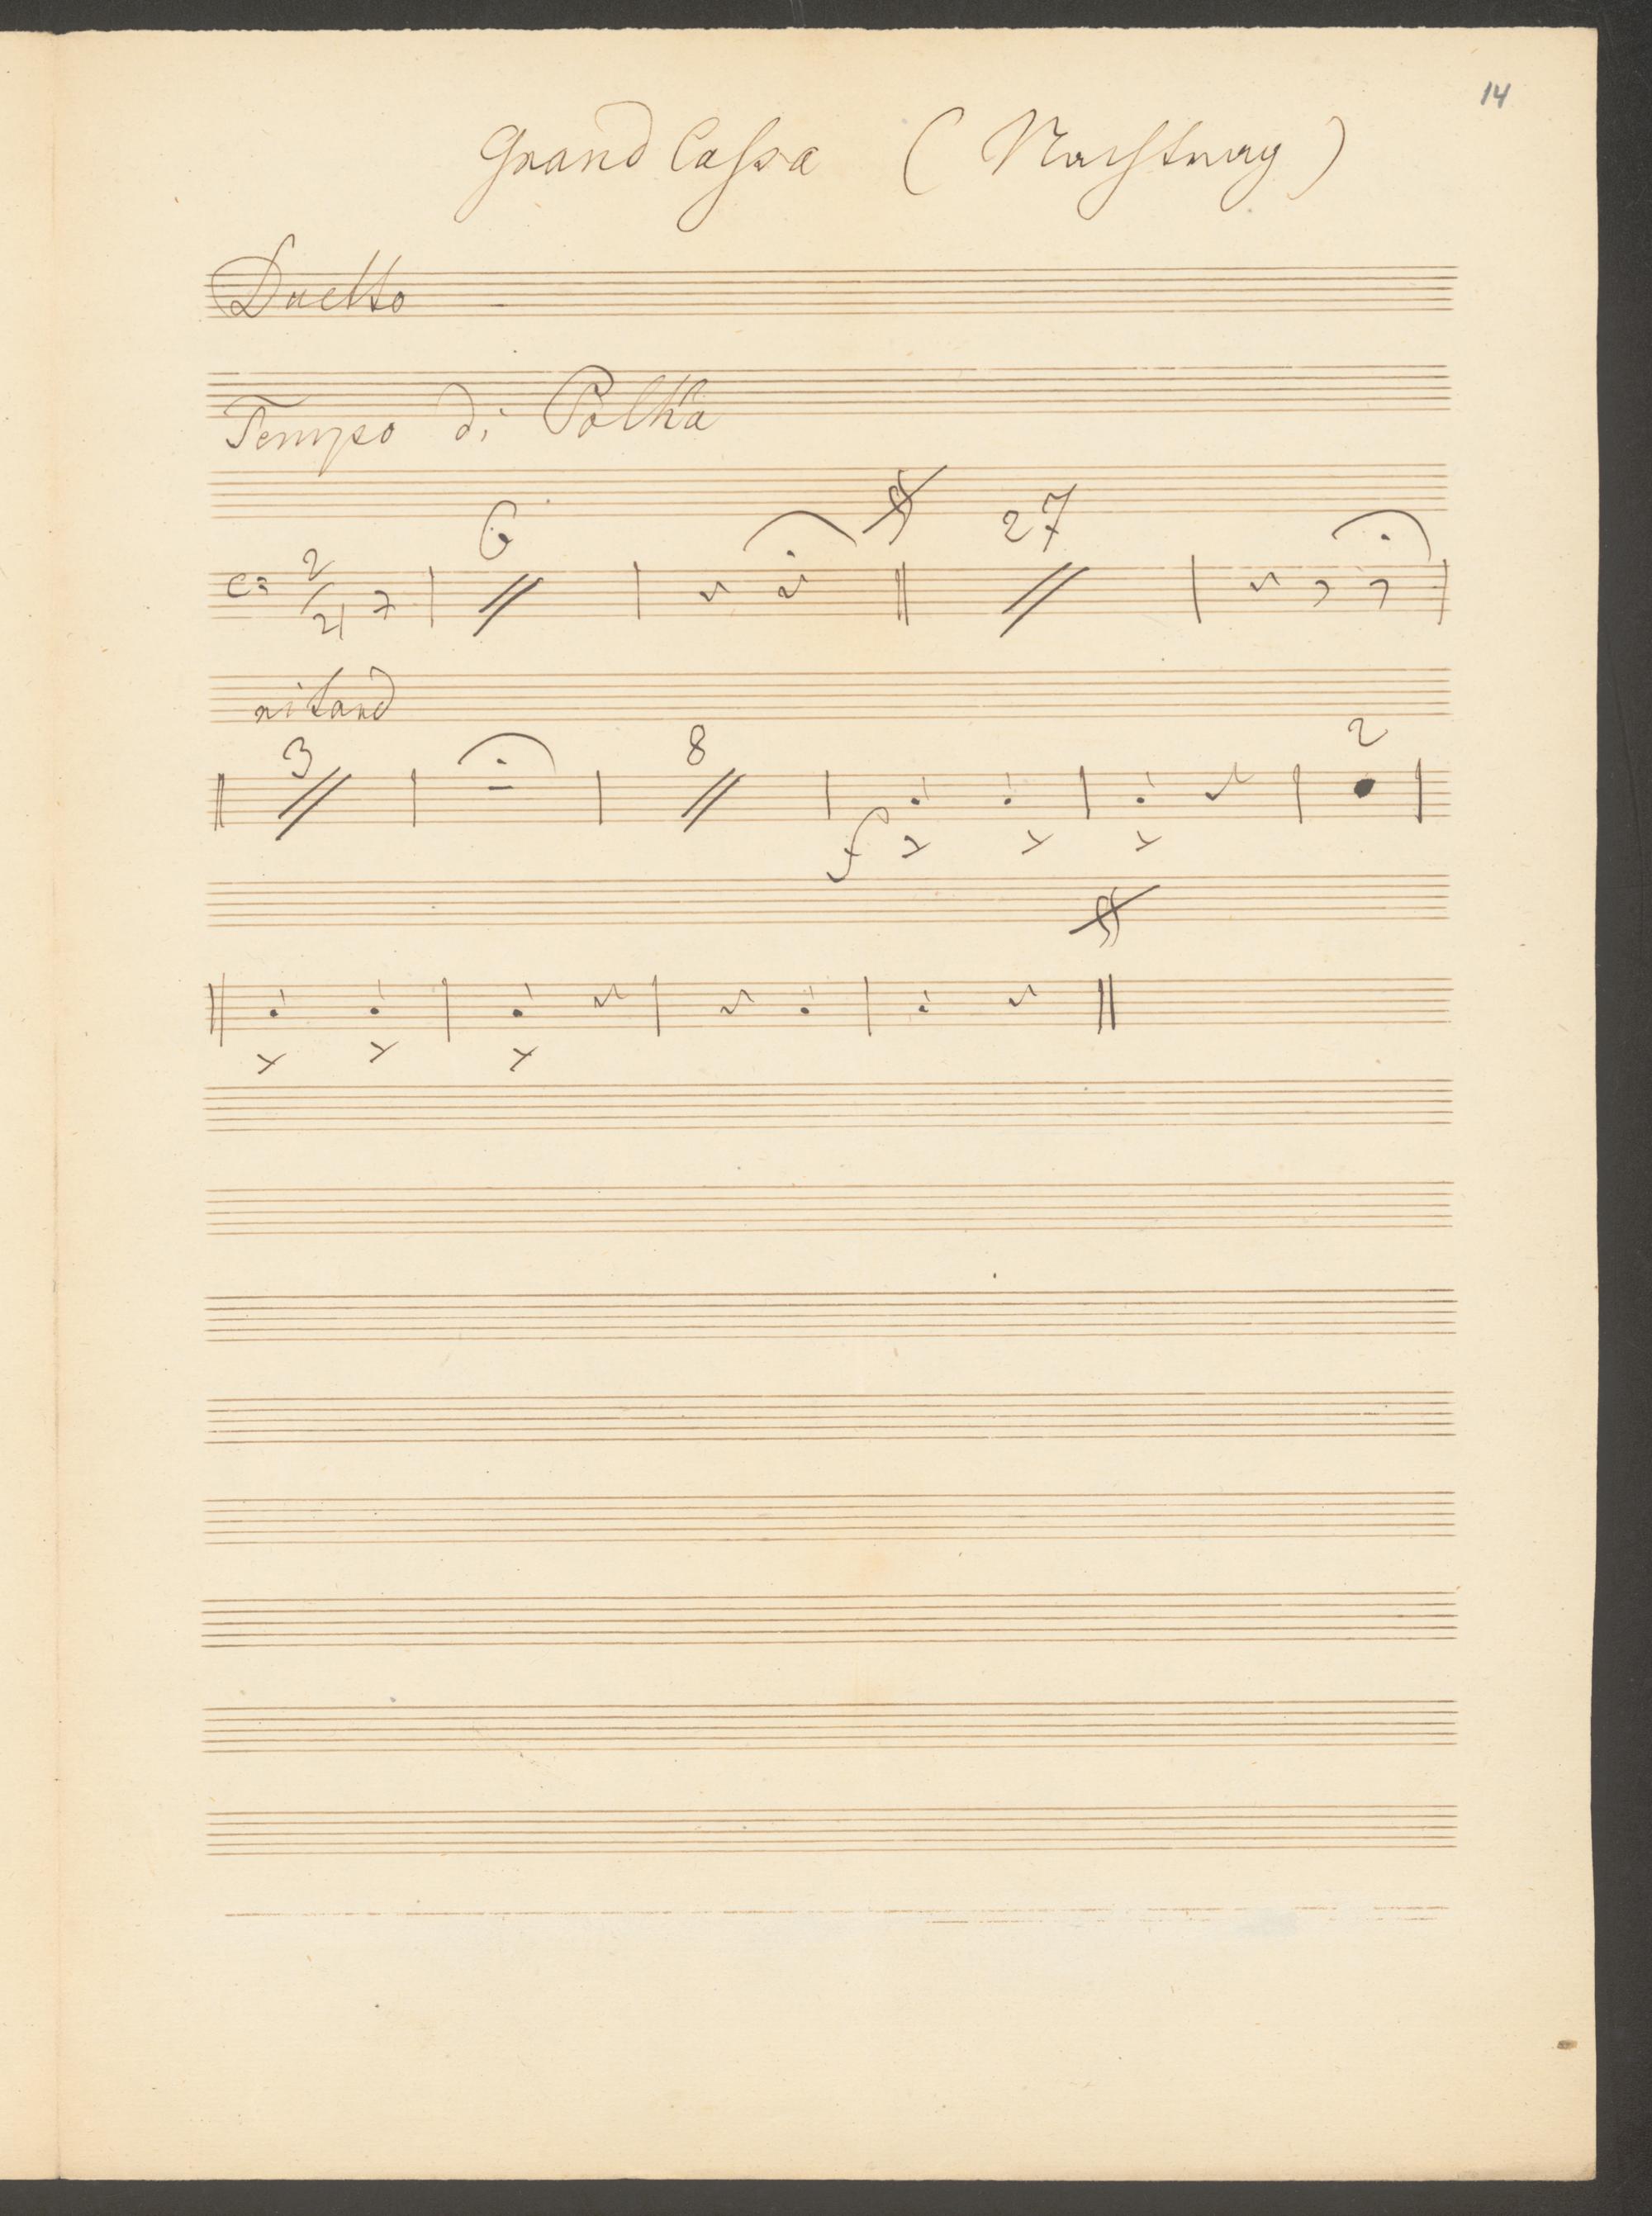 14
Grand Cassa (Nachtrag)
Duetto
Tempo di Polka
6 27
2/4
ritard
3 8 2
f